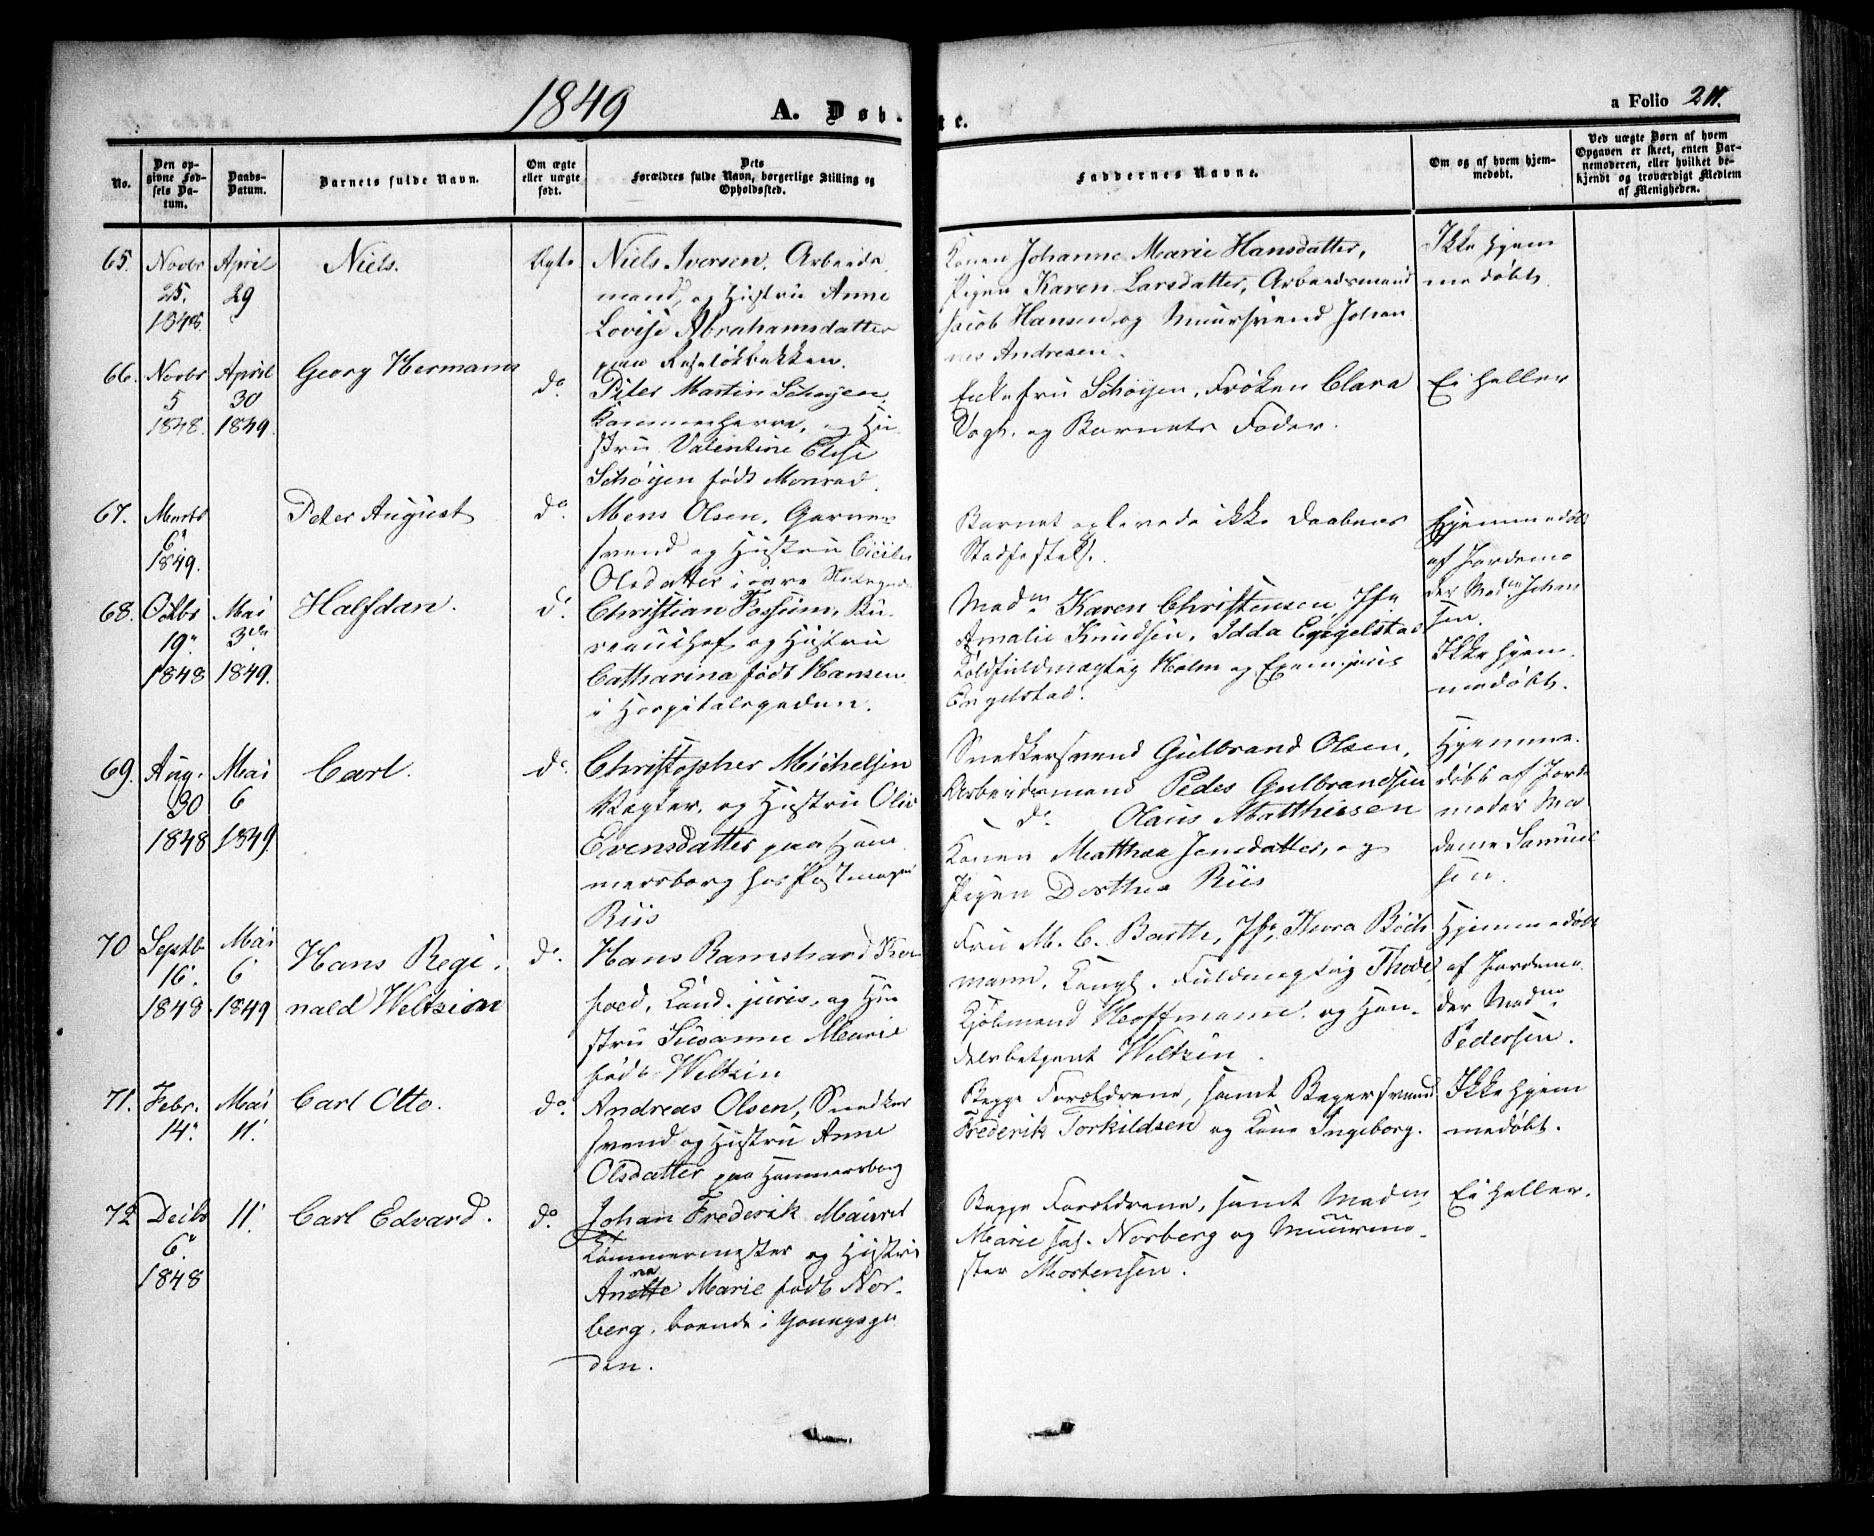 1849
A. Døb-
te.
a Folio 211.
No.
Den op-
givne Fød-
sels Da-
tum.
Daabs-
Datum.
Barnets fulde Navn.
Om ægte
eller uægte
født.
Dets
Forældres fulde Navn, borgerlige Stilling og
Opholdssted.
Faddernes Navne.
Om og af hvem hjem-
medøbt.
Ved uægte Børn af hvem
Opgaven er skeet, enten Bar-
nemoderen, eller hvilket be-
kjendt og troværdigt Medlem
af Menigheden.
65.
Novbr
25.
1848
April
29
Niels.
Ægte
Niels Iversen, Arbeids
mand, og Hustru Anne
Lovise Abrahamsdatter
paa Ruseløkbakken.
Konen Johanne Marie Hansdatter,
Pigen Karen Larsdatter, Arbeidsmand
Jacob Hansen og Muursvend Johan
nes Andresen.
Ikke hjem
medøbt.
66.
Novbr
5
1848.
April
30
1849.
Georg Hermann
do.
Peter Martin Schøyen,
Kammerherre, og Hu
stru Valentine Elise
Schøyen født Monrad.
Enkefru Schøyen, Frøken Clara
Vogt, og Barnets Fader.
Ei heller
67.
Marts
6
1849.
Peter August
do.
Mons Olsen, Garver
svend og Hustru Cicilie
Olsdatter i øvre
Barnet oplevede ikke Daabens
Stadfæstelse.
Hjemmedøbt
af Jordemo
der Madm Johan
sen.
68.
Octbr
19.
1848
Mai
3die
1849.
Halfdan.
do.
Christian Fossum, Bu-
reauchef og Hustru
Catharina født Hansen
i Hospitalsgaden.
Madm Karen Christensen, Jfr
Amalie Knudsen, Idda Engelstad
Toldfuldmægtig Holm og Exam. juris
Engelstad.
Ikke hjem-
medøbt.
69.
Aug.
30
1848
Mai
6
1849.
Carl.
do.
Christopher Michelsen
Vægter, og Hustru Olia
Evensdatter paa Ham
mersborg hos Postmager
Riis
Snedkersvend Gulbrand Olsen,
Arbeidsmand Peder Gulbrandsen
do. Olaus Matthisen
Konen Matthea Jensdatter, og
Pigen Dorthea Riis
Hjemme-
døbt af Jorde
moder Ma-
dame Samuel
sen.
70
Septb
16.
1848
Mai
6
1849
Hans Regi-
nald Weltzien
do.
Hans Ramshard
foed, Kand. juris, og Hu
stru Susanne Marie
født Weltzin
Fru M. C. Barth, Jfr. Thora Bøds
mann, Kongl. Fuldmægtig Thode
Kjøbmand Hoffmann, og Han-
delsbetjent Weltzin.
Hjemmedøbt
af Jordemo
der Madme
Pedersen.
71.
Febr.
14.
Mai
11.
Carl Otto.
do.
Andreas Olsen, Snedker
svend og Hustru Anne
Olsdatter paa Hammersborg
Begge Forældrene, samt Bagersvend
Frederik Torkildsen og Kone Ingeborg.
Ikke hjem
medøbt.
72
Decbr
6.
1848
11.
Carl Edvard.
do.
Johan Frederik
Tømmermester og Hustru
Anette Marie født Nor-
berg, boende i Youngsga
den.
Begge Forældrene, samt Madm
Marie sal. Norberg og Muurme-
ster Mortensen.
Ei heller.